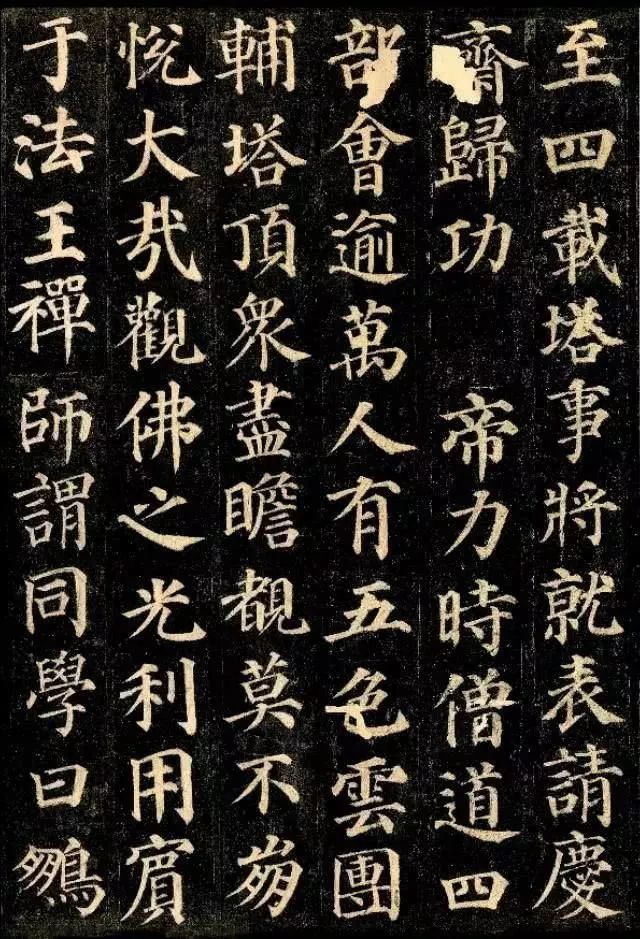 至四載塔事將就表請慶
齋歸功 帝力時僧道四
部會逾萬人有五色雲團
輔塔頂眾盡瞻覩莫不崩
悅大哉觀佛之光利用賓
于法王禪師謂同學曰鵬